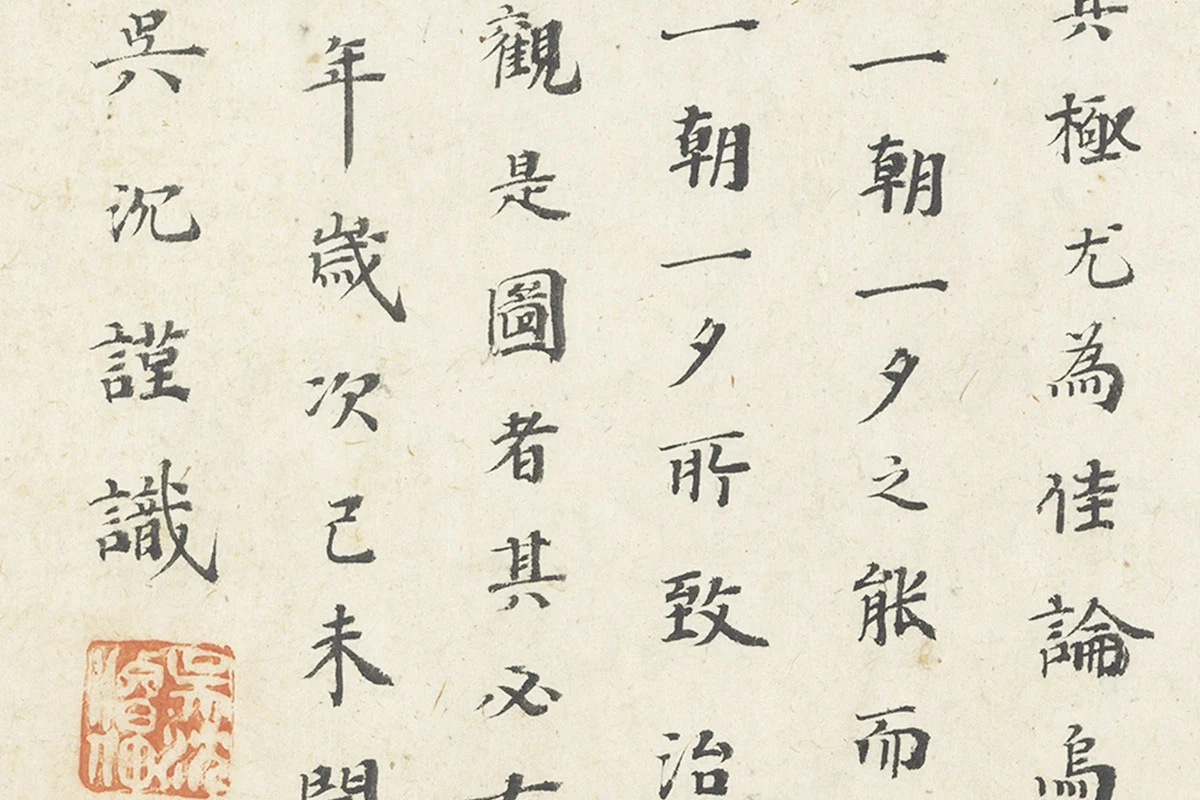 其極尤為佳論烏
一朝一夕之能而
一朝一夕所致治
觀是圖者其必
年歲次己未閏
吳沉謹識